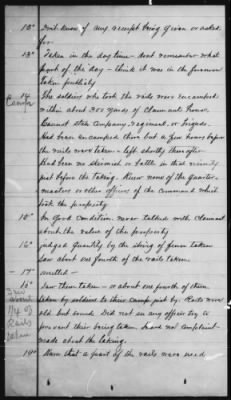 12" Don't know of any receipt being given or asked
for
13" Taken in the day time - dont remember what
part of the day - think it was in the forenoon
taken publicly
14 The soldiers who took the rails were encamped
Camp
within about 300 yards of Claimants house.
Cannot state company, regiment, or brigade.
Had been encamped there but a few hours before
the rails were taken - left shortly thereafter
Had been no skirmish or battle in that vicinity
just before the taking. Knew none of the quarter-
masters or other officers of the command which
took the property
15" In Good Condition never talked with Claimant
about the value of the property
16" judged quantity by the string of fence taken
Saw about one fourth of the rails taken.
- 17" omitted -
18" Saw them taken - or about one fourth of them
Saw
about
1/4 of
Rails
taken
taken by soldiers to their camp just by. Rails were
old but sound. Did not see any officer try to
prevent their being taken. heard no complaint
made about the taking.
19" Knew that a part of the rails were used